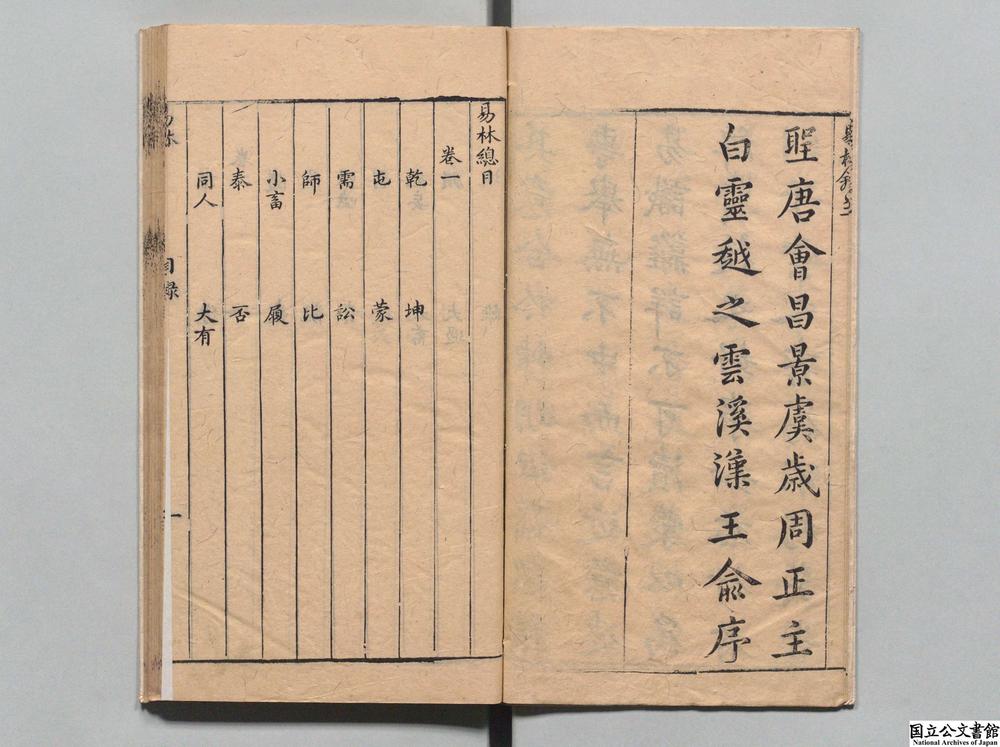 聖唐會昌景虞歲周正主
白靈越之雲溪漢王俞序
易林總目
卷一
乾 坤
屯 蒙
需 訟
師 比
小畜 履
泰 否
同人 大有
易林 目錄 一
国立公文書館
National Archives of Japan